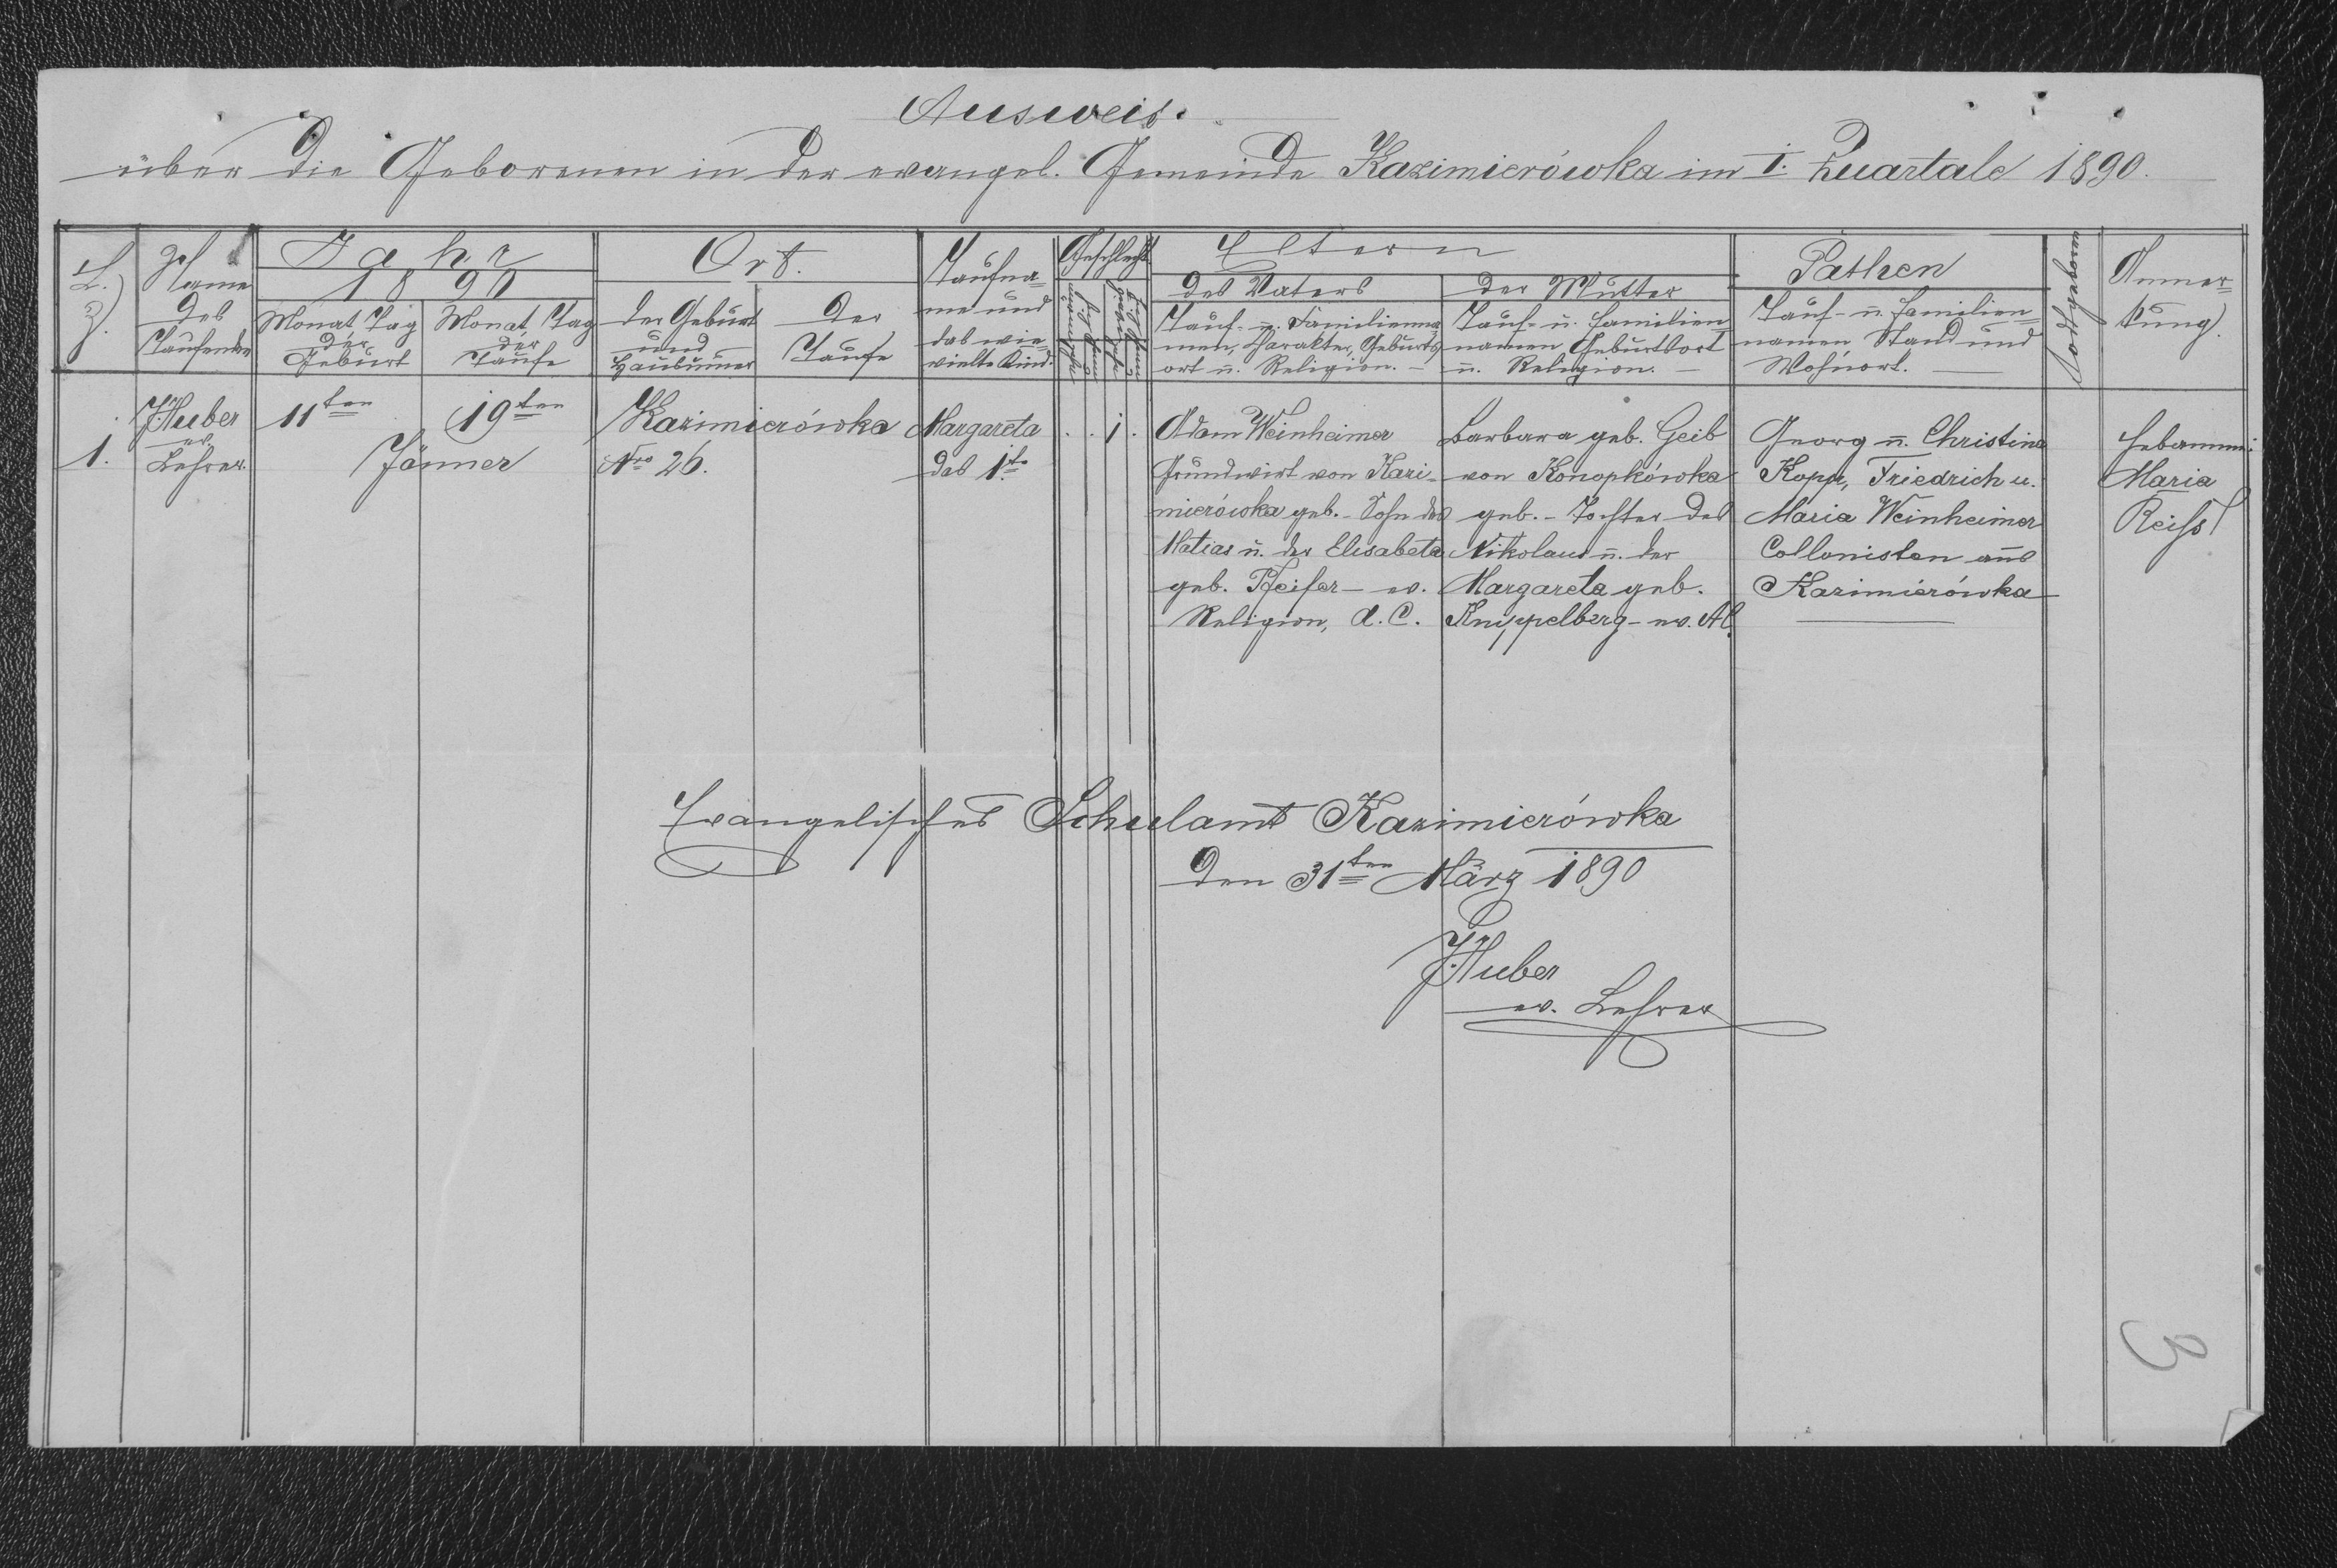 Ausweis.
über die Geborenen in der evangel. Gemeinde Kazimierówka im I. Quartale 1890.
L. Z.
Name
des
Taufenden
Jahr
1890
Monat, Tag
der
Geburt
Monat, Tag
der
Taufe
Ort.
der Geburt
und
Hausnumer
der
Taufe
Taufna=
me und
das wie=
vielte Kind.
Geschlecht
Eltern
des Vaters
Tauf- u. Familienna=
men, Charakter, Geburts=
ort u. Religion. –
der Mutter
Tauf- u. Familien=
namen Geburtsort
u. Religion. –
Pathen
Tauf- u. Familien=
namen Stand und
Wohnort. –
Todtgeboren
Anmer=
kung.
1.
J. Huber
ev.
Lehrer.
11ten
19ten
Jänner
Kazimierówka
Nro 26.
Margareta
das 1te
. . 1 .
Adam Weinheimer
Grundwirt von Kazi-
mierówka geb. - Sohn des
Matias u. der Elisabeta
geb. Pfeifer – ev.
Religion, A. C.
Barbara geb. Geib
von Konopkówka
geb. - Tochter des
Nikolaus u. der
Margareta geb.
Knippelberg – ev. AC.
Georg u. Christina
Kopp, Friedrich u.
Maria Weinheimer
Collonisten aus
Kazimierówka
Hebamme:
Maria
Reiss
Evangelisches Schulamt Kazimierówka
den 31ten März 1890
J. Huber
ev. Lehrer
3